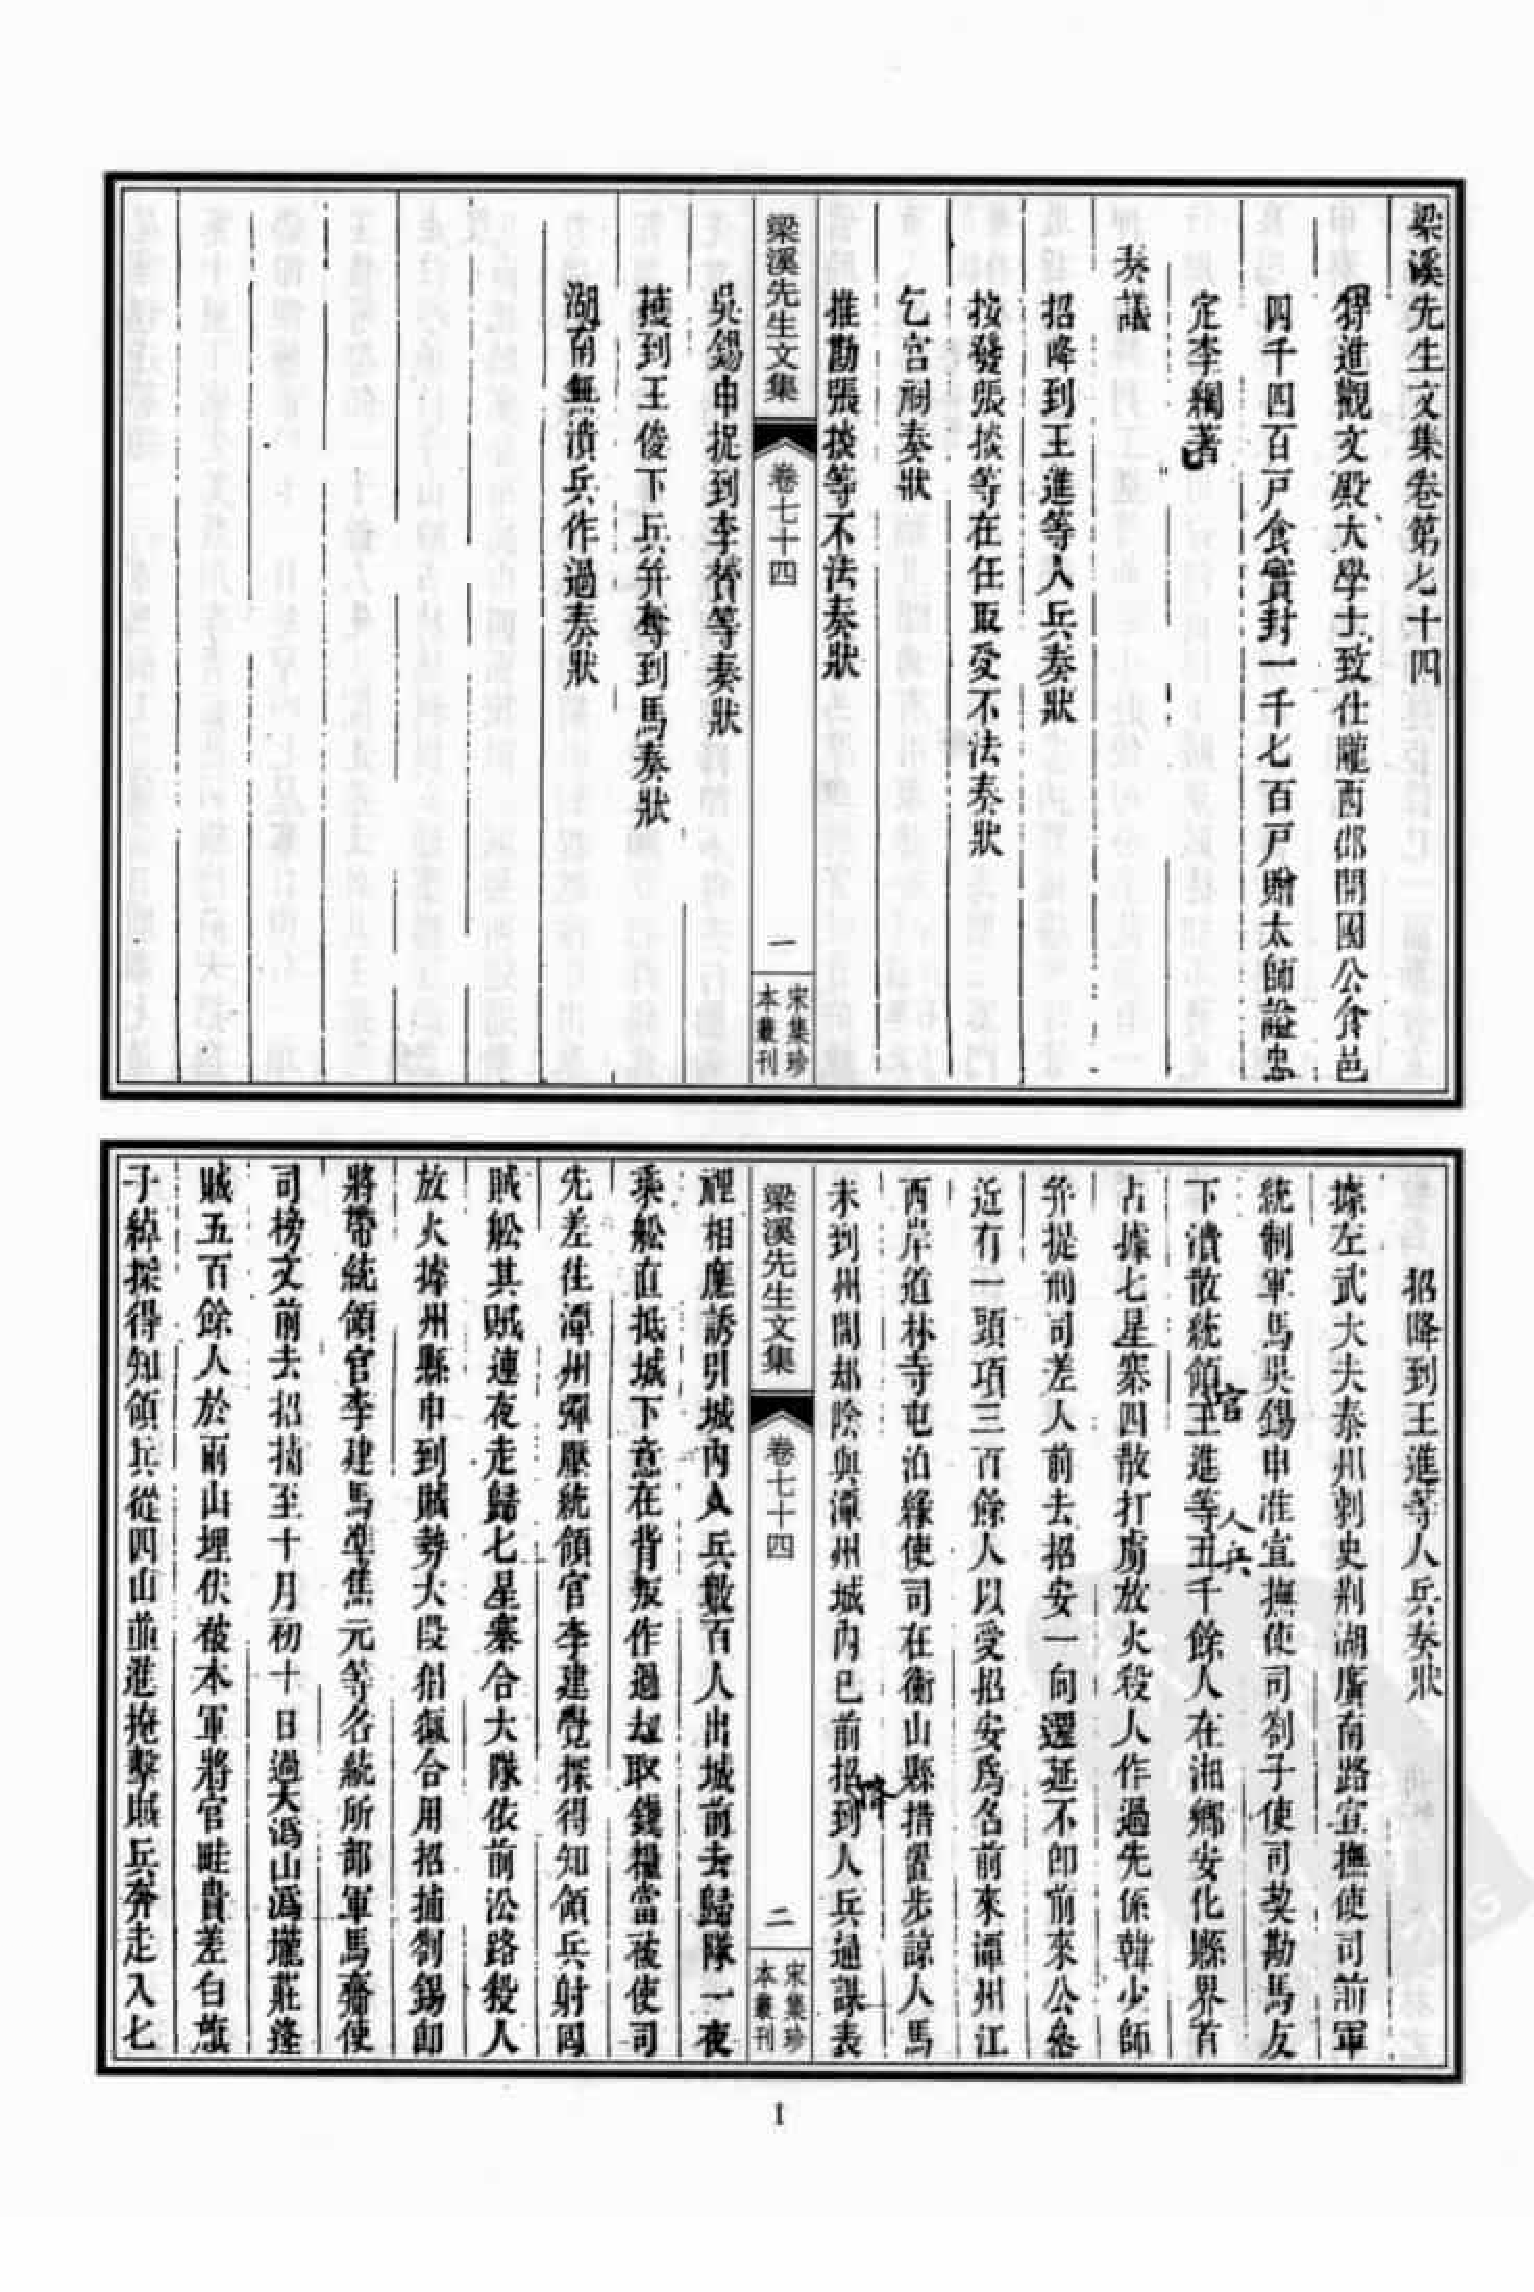 梁溪先生文集卷第七十四
特進觀文殿大學士致仕隴西郡開國公食邑
四千四百戸食實封一千七百戸贈太師謚忠
定李綱著
奏議
招降到王進等人兵奏狀
按發張掞等在任取受不法奏狀
乞宮祠奏狀
推勘張掞等不法奏狀
梁溪先生文集
卷七十四
一
宋集珍
本叢刊
吳錫申捉到李贇等奏狀
䕶到王俊下兵并奪到馬奏狀
湖南無潰兵作過奏狀
招降到王進等人兵奏狀
據左武大夫泰州刺史荆湖廣南路宣撫使司前軍
統制軍馬吳錫申准宣撫使司劄子使司契勘馬友
下潰散統領官王進等人兵五千餘人在湘鄉安化縣界首
占據七星寨四散打虜放火殺人作過先係韓少師
并提刑司差人前去招安一向遷延不即前來公叅
近有一頭項三百餘人以受招安爲名前來潭州江
西岸道林寺屯泊緣使司在衡山縣措置步諒人馬
未到州間却陰與潭州城内已前招降到人兵通謀表
梁溪先生文集
卷七十四
二
宋集珍
本叢刊
裡相應誘引城内人兵數百人出城前去歸隊一夜
乘舩直抵城下意在背叛作過刼取錢糧當被使司
先差往潭州彈壓統領官李建覺探得知領兵射回
賊舩其賊連夜走歸七星寨合大隊依前㳂路殺人
放火據州縣申到賊勢大段猖獗合用招捕劄錫即
將帶統領官李建馬準焦元等名統所部軍馬齎使
司榜文前去招捕至十月初十日過大溈山溈壠莊逢
賊五百餘人於兩山埋伏被本軍將官眭貴差白旗
子綽探得知領兵從四山並進掩擊賊兵奔走入七
1